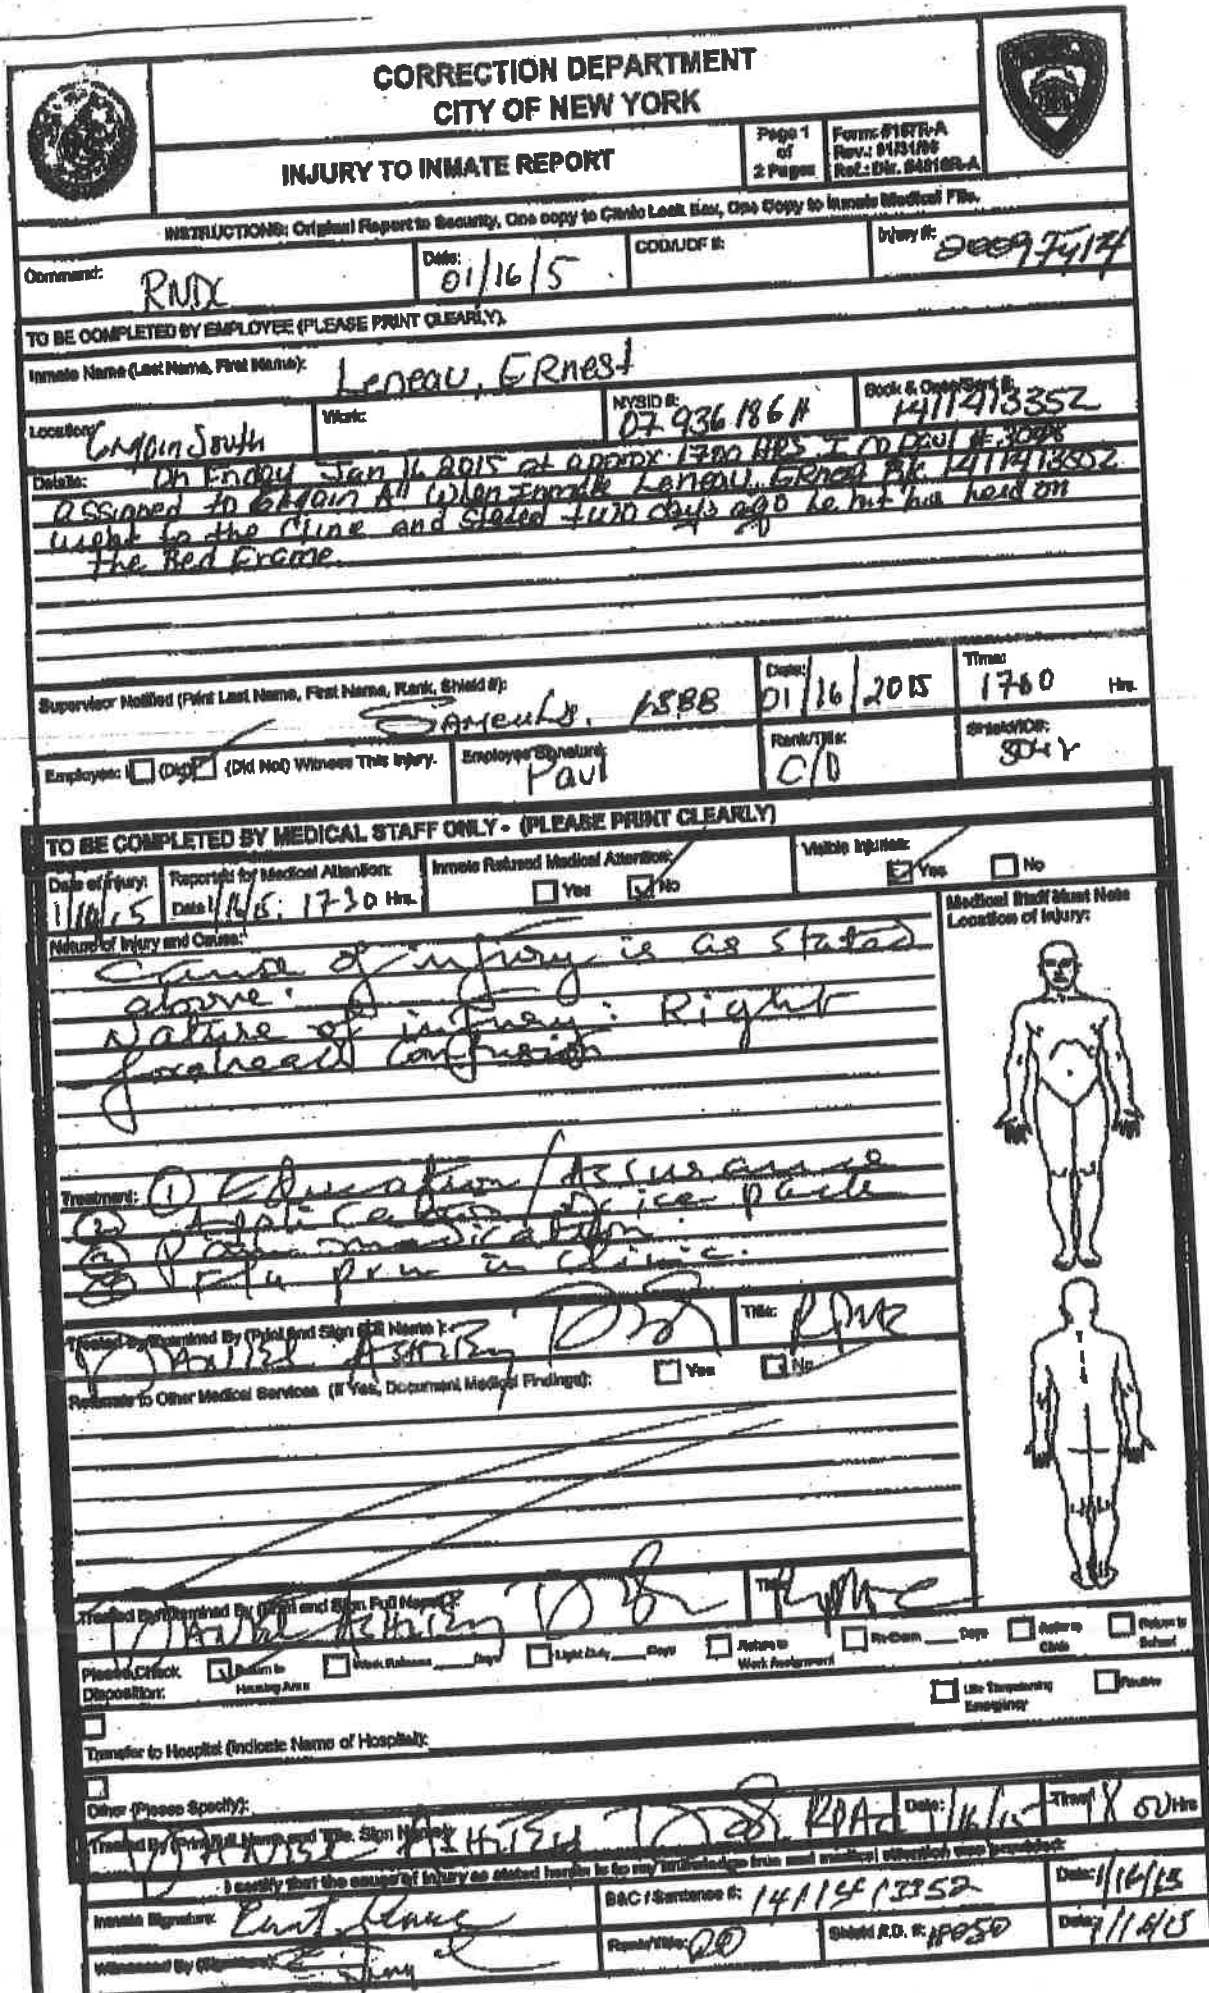 CORRECTION DEPARTMENT
CITY OF NEW YORK
INJURY TO INMATE REPORT
Page 1
of
2 Pages
Form: #167R-A
Rev.: 01/31/
Ref.: Dir. #4516R-A
INSTRUCTIONS: Original Report to Security, One copy to Clinic Lock Box, One Copy to Inmate Medical File.
Command: RNDC
Date: 01/16/5
COD/UOF #:
Injury #:
TO BE COMPLETED BY EMPLOYEE (PLEASE PRINT CLEARLY).
Inmate Name (Last Name, First Name): Leneau, ERnest
Location: South
Work:
NYSID #:
Book & Case/Sent #: 1411413352
Details: On Friday Jan 16 2015 at approx. 1700 HRS. I
assigned to When Inmate Leneau, ERnest 1411413352
to the and stated two days ago he hit his head on
the Bed Frame.
Supervisor Notified (Print Last Name, First Name, Rank, Shield #):
Date: 01/16/2015
Time: Hrs.
Employee: I (Did) (Did Not) Witness This Injury.
Employee Signature: Paul
Rank/Title: C/O
Shield/ID#:
TO BE COMPLETED BY MEDICAL STAFF ONLY - (PLEASE PRINT CLEARLY)
Date of Injury:
Reported for Medical Attention:
Date 1/16/15: 1730 Hrs.
Inmate Refused Medical Attention:
Yes No
Visible Injuries:
Yes No
Medical Staff Must Note
Location of Injury:
Nature of Injury and Cause:
Cause of injury is as stated
above.
Nature of injury: Right
forehead contusion
Treatment: ① Education / Assurance
② Application of ice pack
③ Pain medication
④ F/u prn in clinic.
Treated By/Examined By (Print and Sign Full Name):
Title:
Referrals to Other Medical Services (If Yes, Document Medical Findings):
Yes No
Treated By/Examined By (Print and Sign Full Name):
Title:
Please Check
Disposition:
Return to
Housing Area
Work Release Days
Light Duty Days
Return to
Work Assignment
Re-Exam Days
Refer to
Clinic
Return to
School
Life Threatening
Emergency
Routine
Transfer to Hospital (Indicate Name of Hospital):
Other (Please Specify):
Treated By (Print Full Name and Title. Sign Name):
Date: 1/16/15
Time: 1800 Hrs
I certify that the cause of injury as stated herein is to my knowledge true and medical attention was provided:
Inmate Signature:
B&C / Sentence #: 1411413352
Date: 1/16/15
Witnessed By (Signature):
Rank/Title:
Shield /I.D. #:
Date: 1/16/15